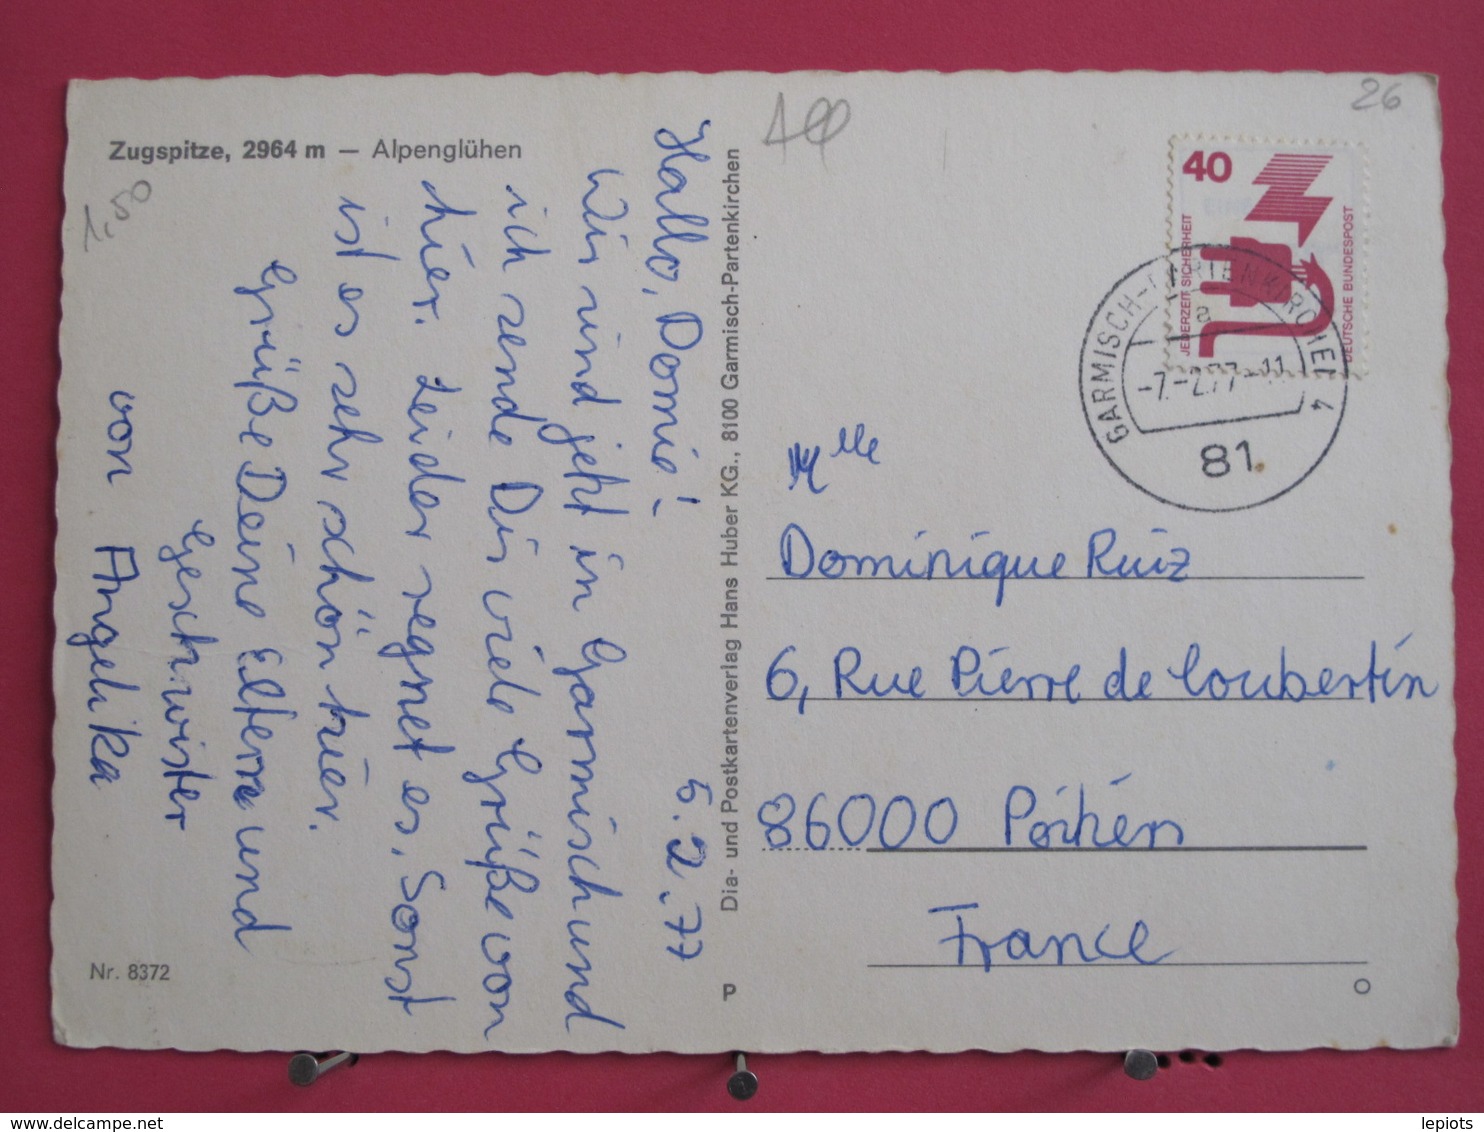 Zugspitze, 2964 m — Alpenglühen
1,50
26
Hallo, Domie!
5.2.77
Wir sind jetzt in Garmisch und
ich sende Dir viele Grüße von
hier. Leider regnet es. Sonst
ist es sehr schön hier.
Grüße Deine Eltern und
Geschwister
von Angelika
Nr. 8372
Dia- und Postkartenverlag Hans Huber KG., 8100 Garmisch-Partenkirchen
P
40
JEDERZEIT SICHERHEIT
DEUTSCHE BUNDESPOST
GARMISCH-PARTENKIRCHEN 4
a
-7.-2.77-11
81
Mlle
Dominique Ruiz
6, Rue Pierre de Coubertin
86000 Poitiers
France
lepiots